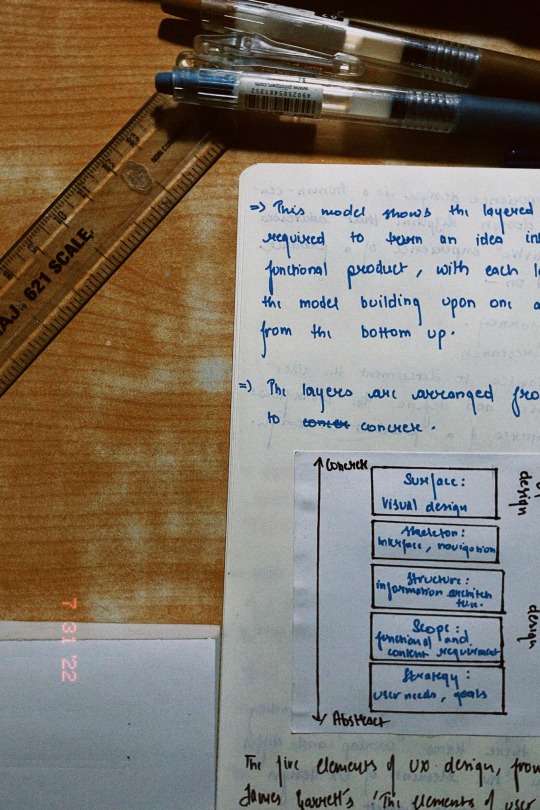 www.pilotpen.com
4902505481352
621 SCALE
=) This model shows the layered
required to turn an idea
functional product, with each
the model building upon one
from the bottom up.
=) The layers are arranged
to concrete.
Concrete
Surface:
Visual design
design
Skeleton:
interface, navigation
Structure:
information architecture.
Scope:
functional and
content requirement
design
Strategy:
user needs, goals
Abstract
7 31 '22
The five elements of UX design, from
James Garrett's 'The elements of user